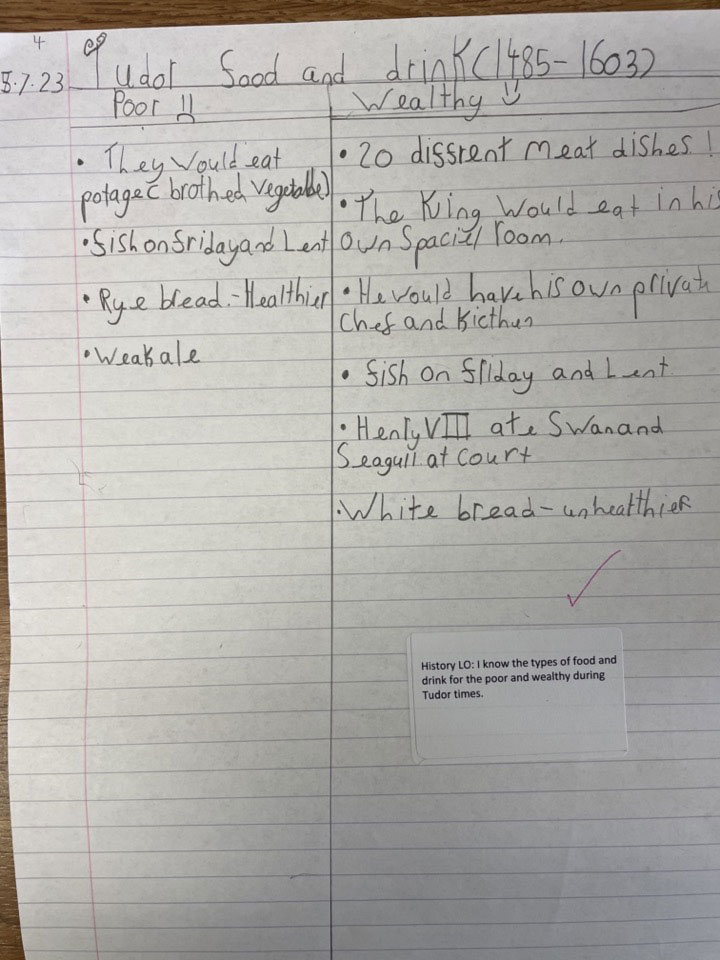 4
5.7.23 Tudor food and drink (1485-1603)
Poor
Wealthy
• They would eat
potage( brothed vegetable)
• fish on friday and Lent
• Rye bread.-Healthier
• Weak ale
• 20 diffrent meat dishes!
• The King would eat in his
own Spacial room.
• He would have his own privat
Chef and Kicthun
• fish on friday and Lent
• Henry VIII ate Swan and
Seagull at court
• White bread - unhealthier
History LO: I know the types of food and
drink for the poor and wealthy during
Tudor times.